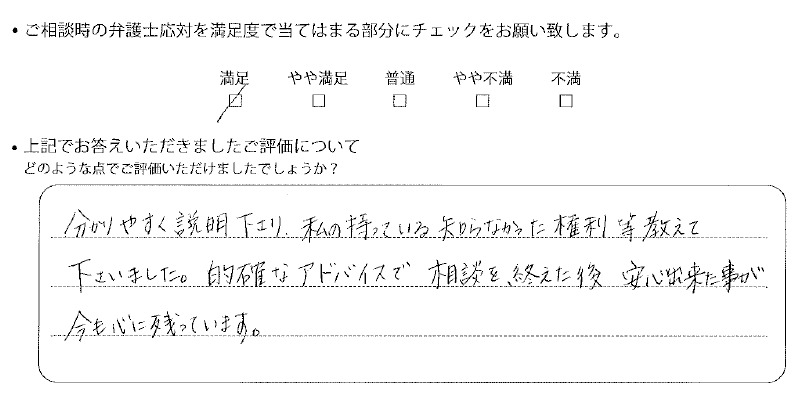 ・ご相談時の弁護士応対を満足度で当てはまる部分にチェックをお願い致します。
満足 やや満足 普通 やや不満 不満
・上記でお答えいただきましたご評価について
どのような点でご評価いただけましたでしょうか？
分かりやすく説明下さり、私の持っている知らなかった権利等教えて
下さいました。的確なアドバイスで 相談を、終えた後 安心出来た事が
今も心に残っています。